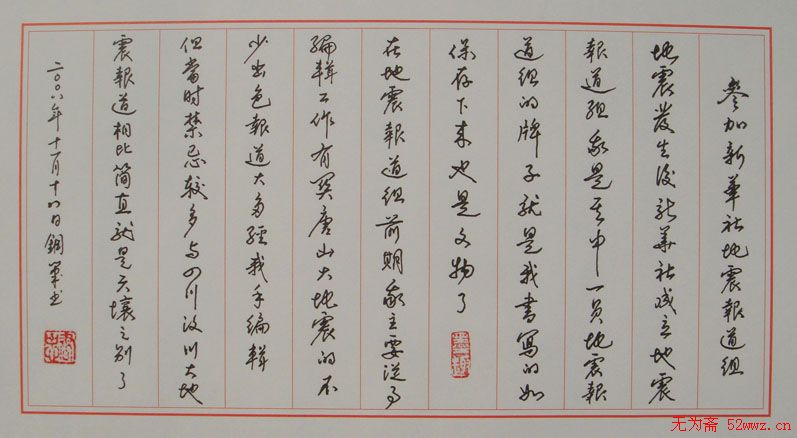 參加新華社地震報道組
地震發生後新華社成立地震
報道組我是其中一員地震報
道組的牌子就是我書寫的如
保存下来也是文物了
在地震報道組前期我主要從事
編輯工作有関唐山大地震的不
少出色報道大多經我手編輯
但當时禁忌較多与四川汶川大地
震報道相比简直就是天壤之别了
二〇〇八年十一月十四日鋼筆书
无为斋 52wwz.cn